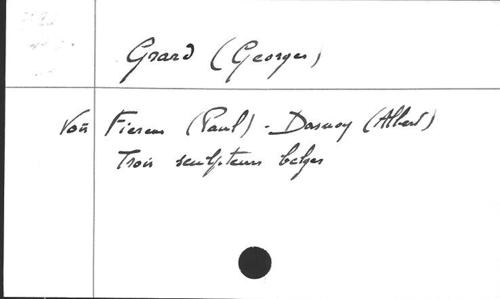 Grard (Georges)
Voir Fierens (Paul) - Dasnoy (Albert)
Trois sculpteurs belges